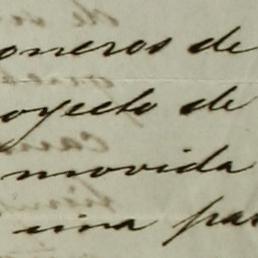 oneros de
oyecto de
movida
una par